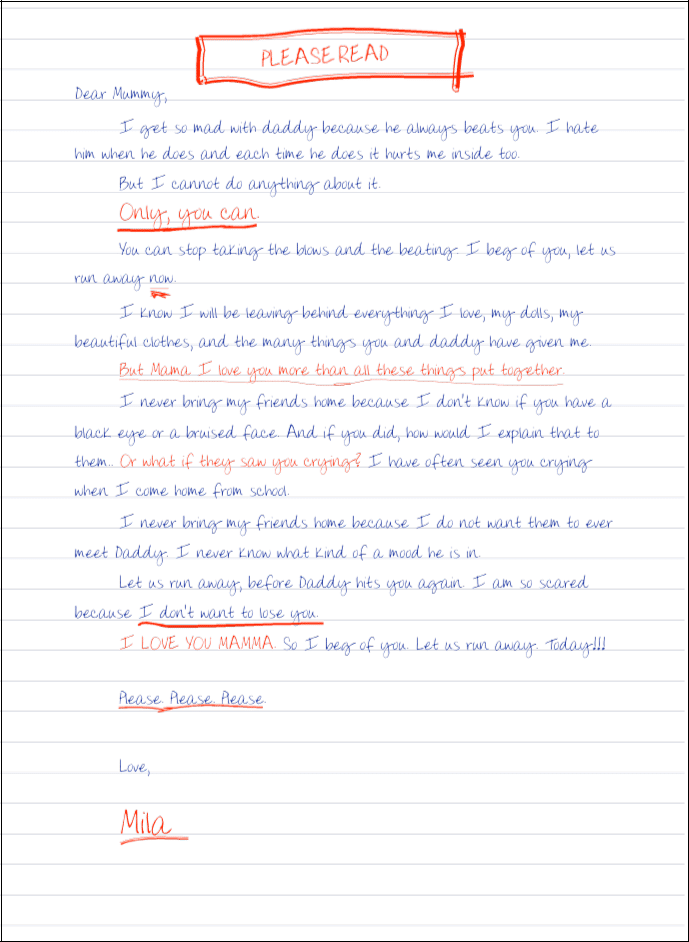 PLEASE READ
Dear Mummy,
I get so mad with daddy because he always beats you. I hate
him when he does and each time he does it hurts me inside too.
But I cannot do anything about it.
Only, you can.
You can stop taking the blows and the beating. I beg of you, let us
run away now.
I know I will be leaving behind everything I love, my dolls, my
beautiful clothes, and the many things you and daddy have given me.
But Mama I love you more than all these things put together.
I never bring my friends home because I don't know if you have a
black eye or a bruised face. And if you did, how would I explain that to
them.. Or what if they saw you crying? I have often seen you crying
when I come home from school.
I never bring my friends home because I do not want them to ever
meet Daddy. I never know what kind of a mood he is in.
Let us run away, before Daddy hits you again. I am so scared
because I don't want to lose you.
I LOVE YOU MAMMA. So I beg of you. Let us run away. Today!!!
Please. Please. Please.
Love,
Mila